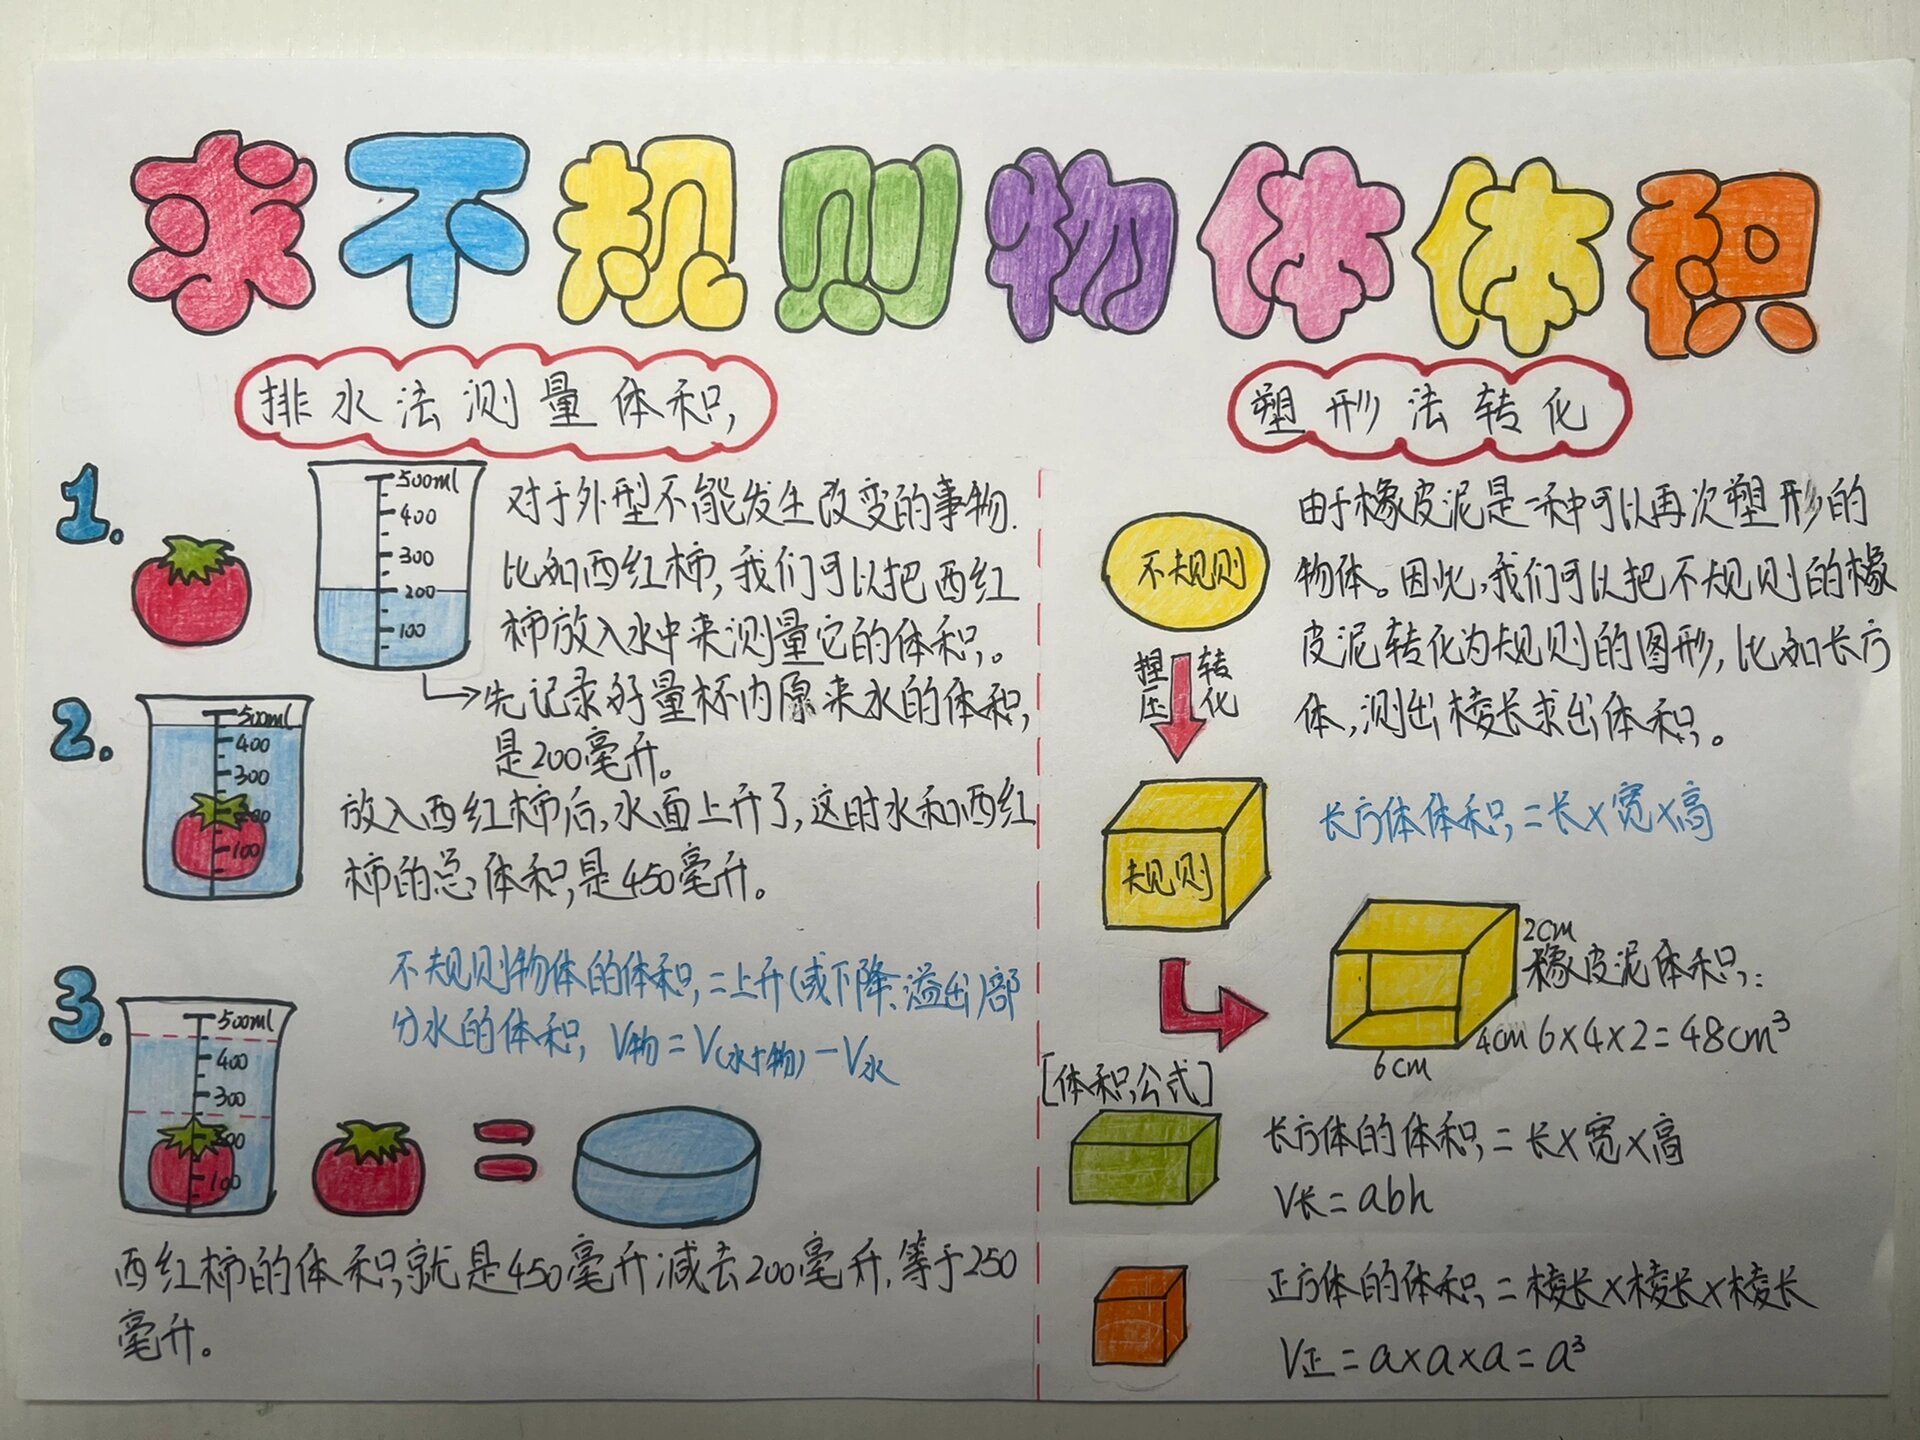 求不规则物体体积
排水法测量体积
1.
500ml
400
300
200
100
对于外型不能发生改变的事物.
比如西红柿,我们可以把西红
柿放入水中来测量它的体积。
先记录好量杯内原来水的体积,
是200毫升。
2.
500ml
400
300
200
100
放入西红柿后,水面上升了,这时水和西红
柿的总体积,是450毫升。
3.
500ml
400
300
200
100
不规则物体的体积=上升(或下降、溢出)部
分水的体积, V物=V(水+物)-V水
=
西红柿的体积,就是450毫升减去200毫升,等于250
毫升。
塑形法转化
不规则
捏压
转化
规则
由于橡皮泥是一种可以再次塑形的
物体。因此,我们可以把不规则的橡
皮泥转化为规则的图形,比如长方
体,测出棱长求出体积。
长方体体积=长×宽×高
2cm
4cm
6cm
橡皮泥体积:
6×4×2=48cm³
[体积公式]
长方体的体积=长×宽×高
V长=abh
正方体的体积=棱长×棱长×棱长
V正=a×a×a=a³